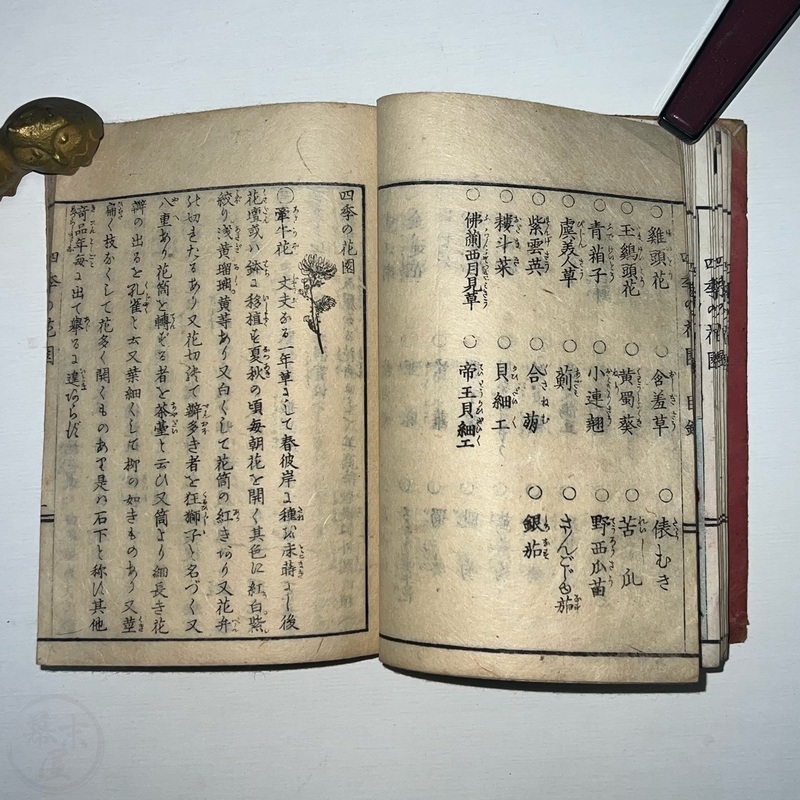 ○雞頭花 ○含羞草 ○俵むき
○玉鷄頭花 ○黄蜀葵 ○苦瓜
○青葙子 ○小連翹 ○野西瓜苗
○虞美人草 ○薊 ○さんごじゆ茄
○紫雲英 ○合萌 ○銀茄
○耧斗菜 ○貝細工
○佛蘭西月見草 ○帝王貝細工
四季の花園 目録
四季の花園
牽牛花 丈夫なる一年草にして春彼岸に種を床蒔にし後
花壇或ハ鉢に移植を夏秋の頃毎朝花を開く其色に紅白紫
絞り浅黄瑠璃黄等あり又白くして花筒の紅きあり又花弁
の切きたるあり又花切けて辧多き者を狂獅子と名づく又
八重あり花筒を轉ずる者を茶臺と云ひ又筒より細長き花
辧の出るを孔雀と云又葉細くして柳の如きものあり又莖
扁く枝なくして花多く開くものあり是ハ石下と称に其他
奇品年毎に出て擧るに遑あらず
四季の花園